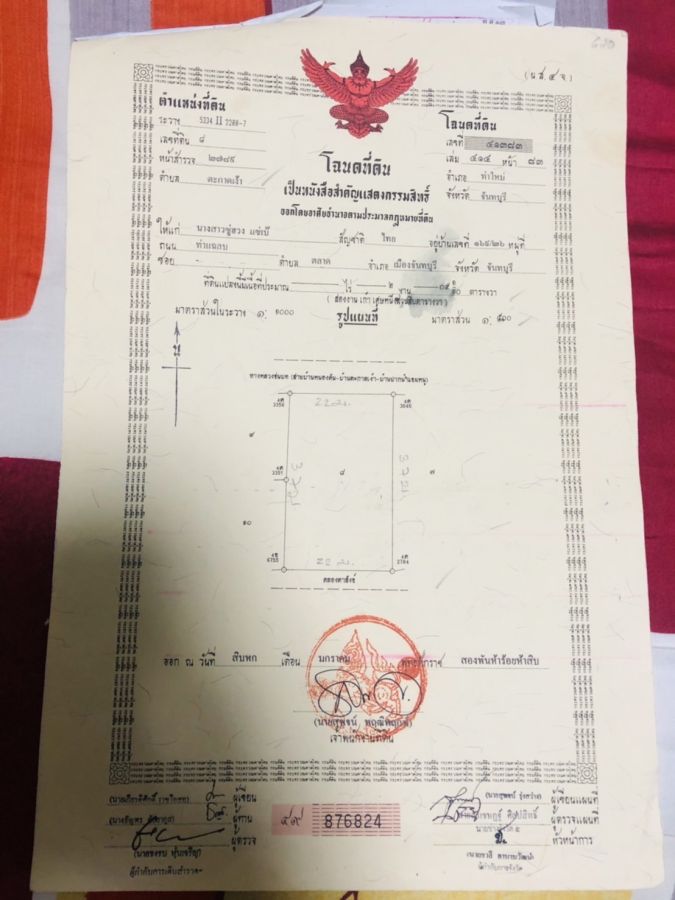 (น.ส. ๔ จ.)
ตำแหน่งที่ดิน
ระวาง 5334 II 2288-7
เลขที่ดิน ๘
หน้าสำรวจ ๒๗๘๙
ตำบล ตะกาดเง้า
โฉนดที่ดิน
เลขที่ ๔๑๓๘๓
เล่ม ๔๑๔ หน้า ๘๓
อำเภอ ท่าใหม่
จังหวัด จันทบุรี
โฉนดที่ดิน
เป็นหนังสือสำคัญแสดงกรรมสิทธิ์
ออกโดยอาศัยอำนาจตามประมวลกฎหมายที่ดิน
ให้แก่ นางสาวซู่ฮวง แซ่เบ๊ สัญชาติ ไทย อยู่บ้านเลขที่ ๑๖๕/๒๖ หมู่ที่
ถนน ท่าแฉลบ
ซอย - ตำบล ตลาด อำเภอ เมืองจันทบุรี จังหวัด จันทบุรี
ที่ดินแปลงนี้มีเนื้อที่ประมาณ - ไร่ ๒ งาน ตารางวา
มาตราส่วนในระวาง ๑: ๑๐๐๐
รูปแผนที่
มาตราส่วน ๑: ๕๐๐
น
22 ม.
๙
๘
๗
33 ม.
3351
๑๐
22 ม.
คลองตาสังข์
ออก ณ วันที่ สิบหก เดือน มกราคม พุทธศักราช สองพันห้าร้อยห้าสิบ
เจ้าพนักงานที่ดิน
ผู้เขียน
ผู้ทาน
ผู้ตรวจ
ผู้กำกับการเดินสำรวจฯ
๔๙ 876824
ผู้เขียนแผนที่
ผู้ตรวจแผนที่
หัวหน้าการ